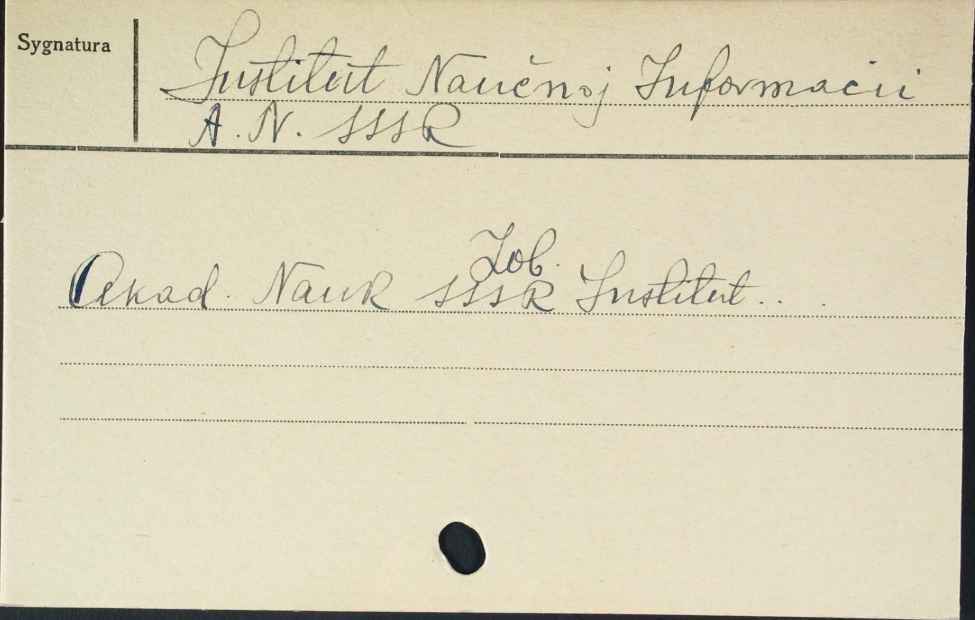 Sygnatura
Institut Naučnoj Informacii
A. N. SSSR
Zob.
Akad. Nauk SSSR Institut...